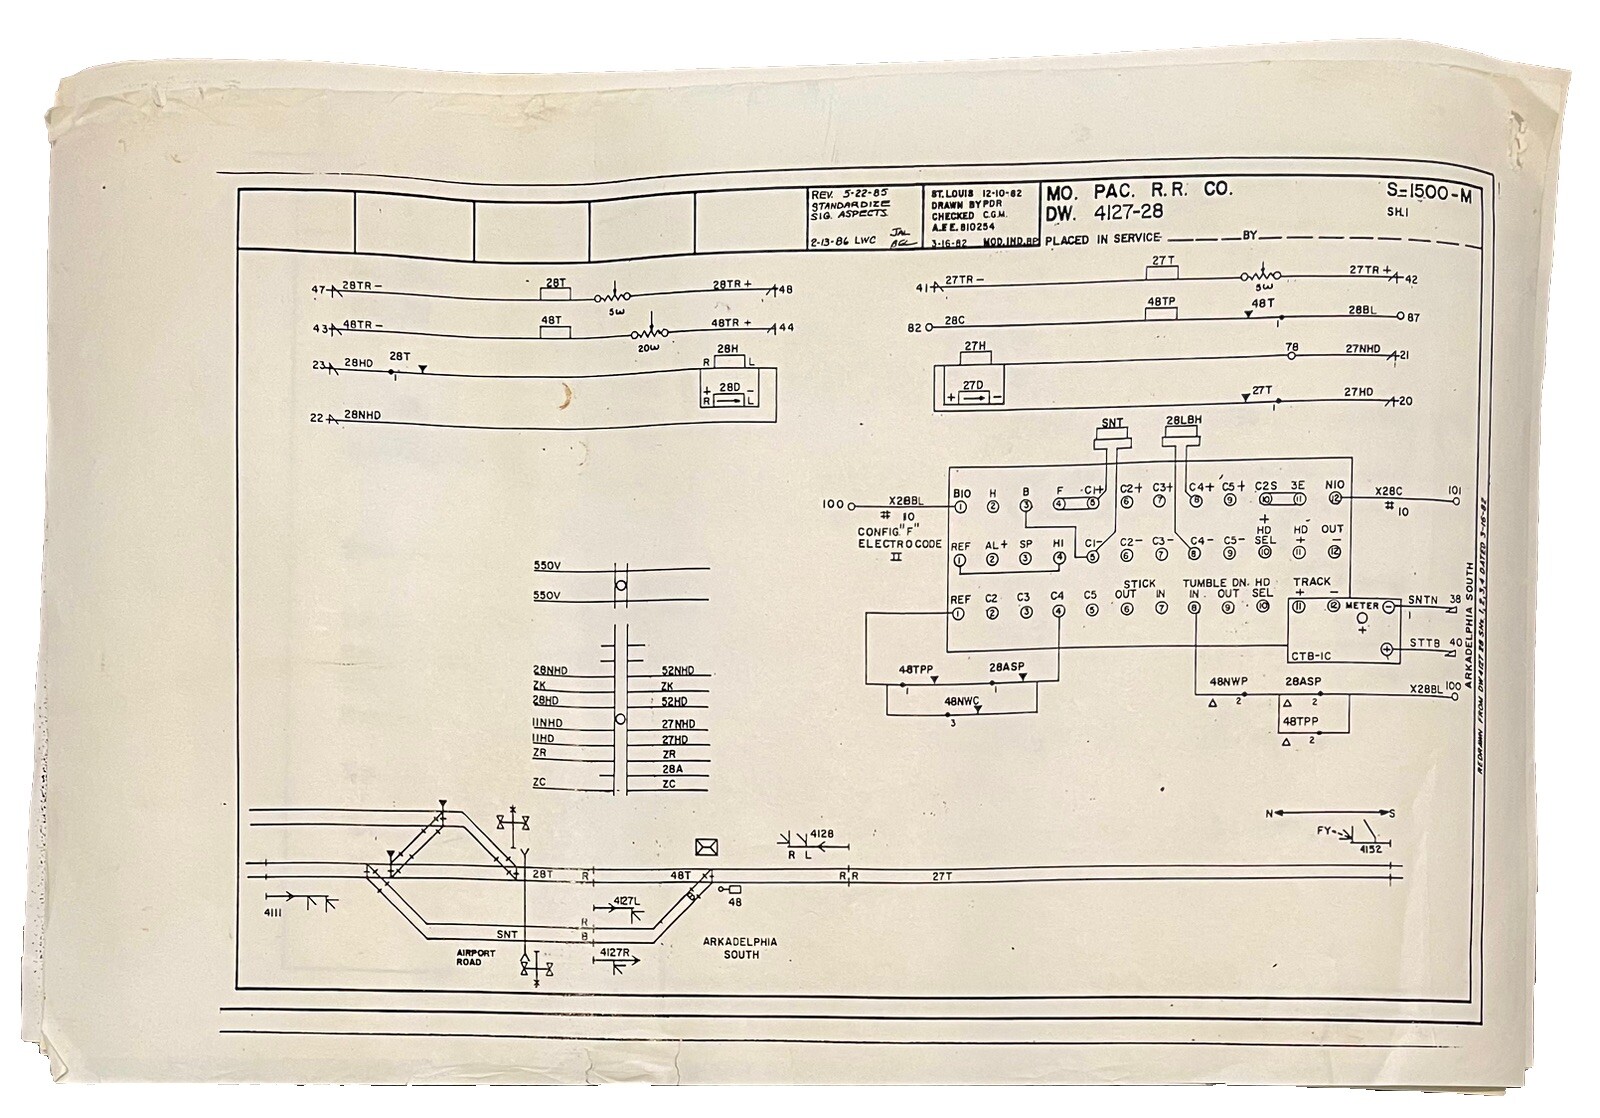 REV. 5-22-85
STANDARDIZE
SIG. ASPECTS
2-13-86 LWC
ST. LOUIS 12-10-82
DRAWN BY PDR
CHECKED C.G.M.
A.F.E. 810254
3-16-82 MOD. IND. BP
MO. PAC. R.R. CO.
DW. 4127-28
S-1500-M
SH.1
PLACED IN SERVICE BY
47 28TR- 28T 5W 28TR+ 48
43 48TR- 48T 20W 48TR+ 44
23 28HD 28T 1 R 28H L
+ 28D -
R L
22 28NHD
41 27TR- 27T 5W 27TR+ 42
82 28C 48TP 48T 1 28BL 87
27H 78 27NHD 21
+ 27D - 27T 1 27HD 20
SNT 28LBH
100 X28BL B10 H B F C1+ C2+ C3+ C4+ C5+ C2S 3E N10 X28C 101
1 2 3 4 5 6 7 8 9 10 11 12
# 10 # 10
CONFIG. "F"
ELECTROCODE
II
+
HD HD OUT
REF AL+ SP H1 C1- C2- C3- C4- C5- SEL + -
1 2 3 4 5 6 7 8 9 10 11 12
STICK TUMBLE DN. HD TRACK
REF C2 C3 C4 C5 OUT IN IN OUT SEL + -
1 2 3 4 5 6 7 8 9 10 11 12
METER - SNTN 38
+ 1
+ STTB 40
CTB-1C
48TPP 28ASP
1 1
48NWC
3
48NWP 28ASP X28BL 100
2 2
48TPP
2
ARKADELPHIA SOUTH
REDRAWN FROM DW 4127-28 SHs. 1,2,3,4 DATED 3-16-82
550V
550V
28NHD 52NHD
ZK ZK
28HD 52HD
11NHD 27NHD
11HD 27HD
ZR ZR
28A
ZC ZC
N S
FY
4152
4128
R L
28T R 48T R R 27T
4111
4127L
48
SNT R
B
B
4127R
AIRPORT
ROAD
ARKADELPHIA
SOUTH